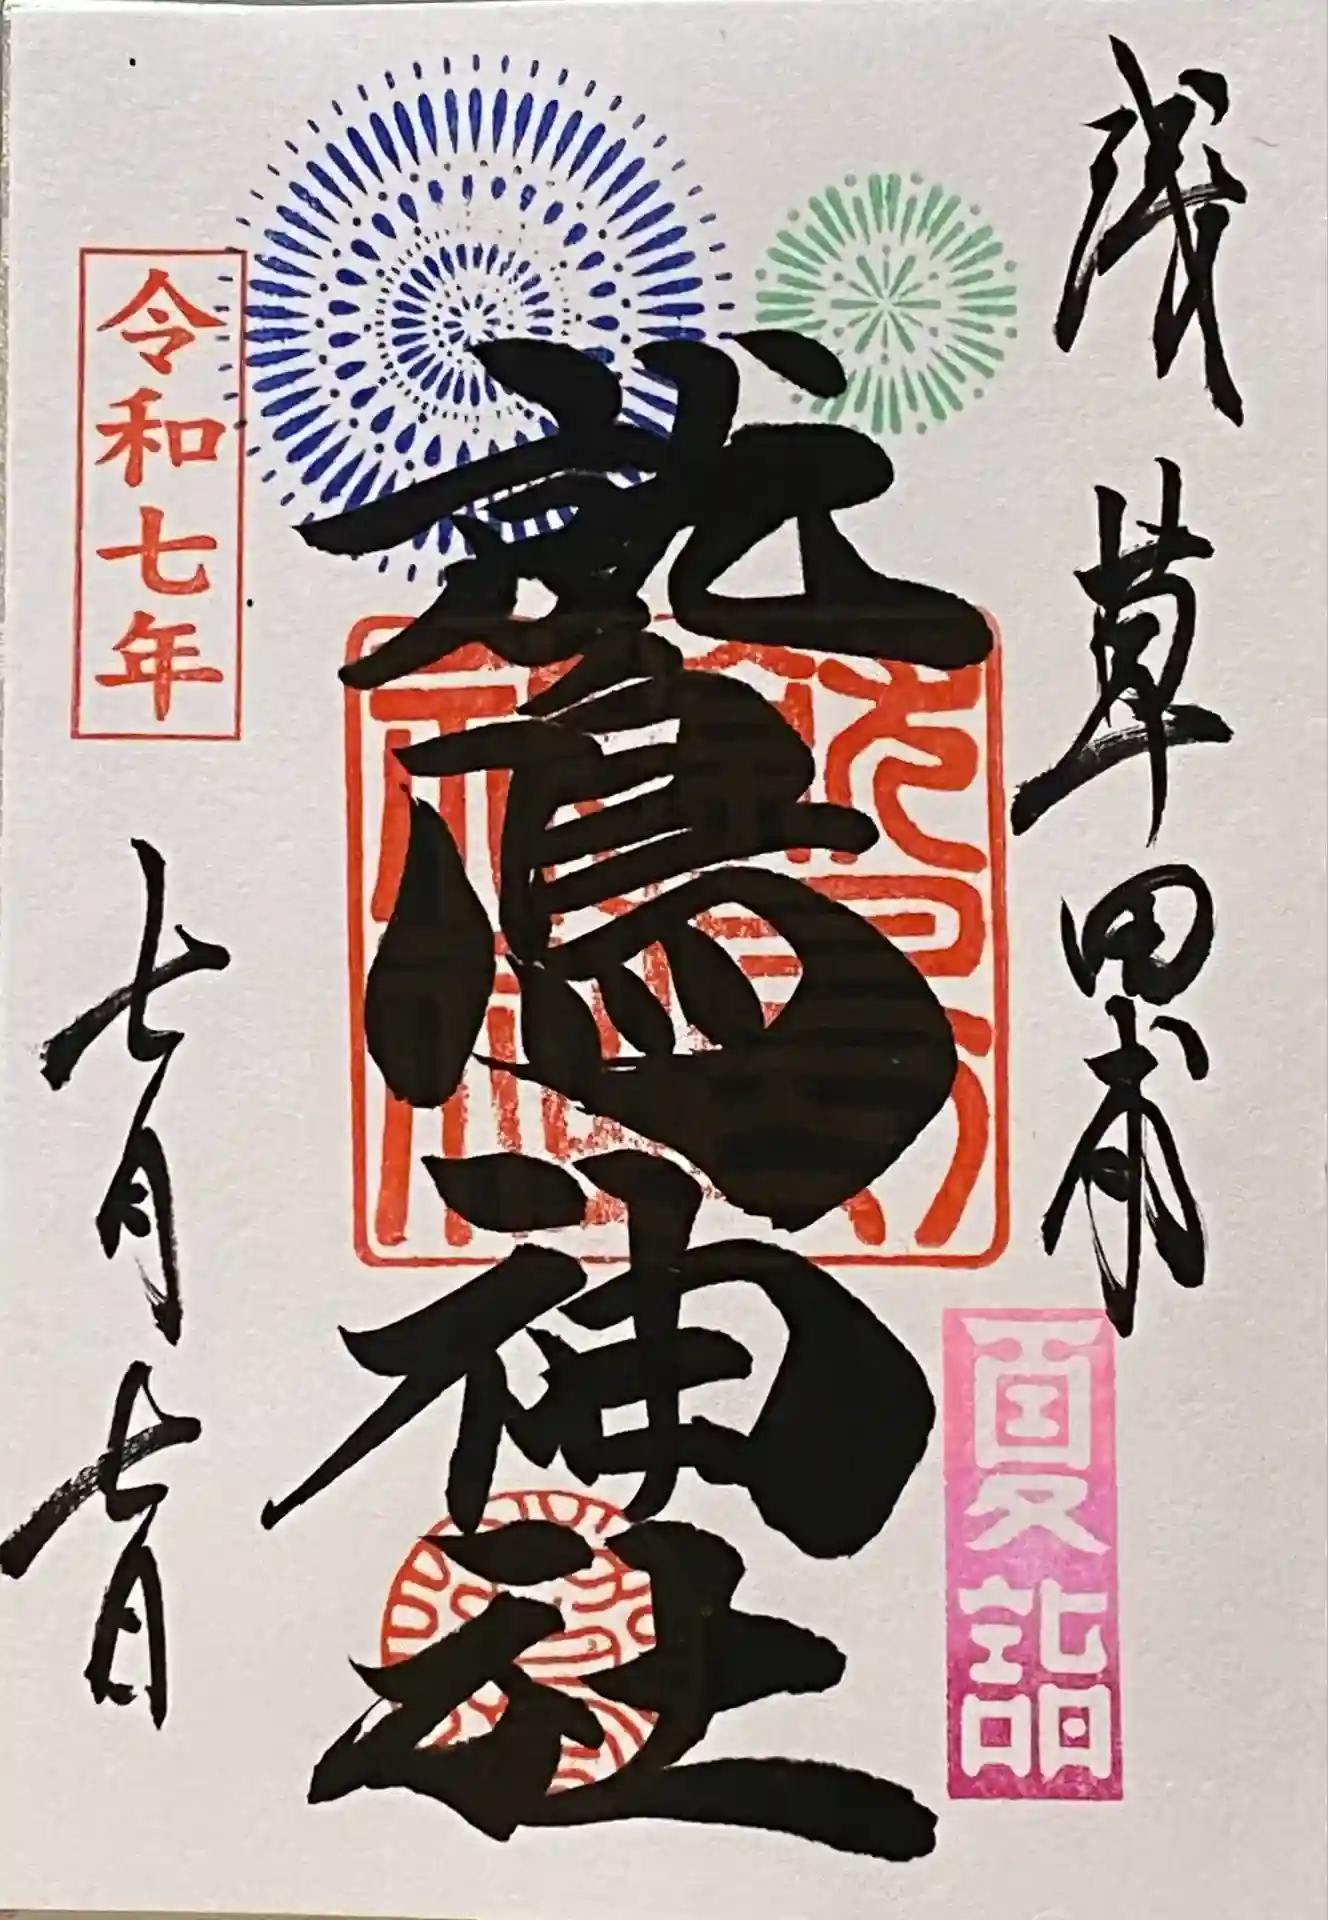 浅草田甫
夏詣
鷲神社
令和七年
七月七日